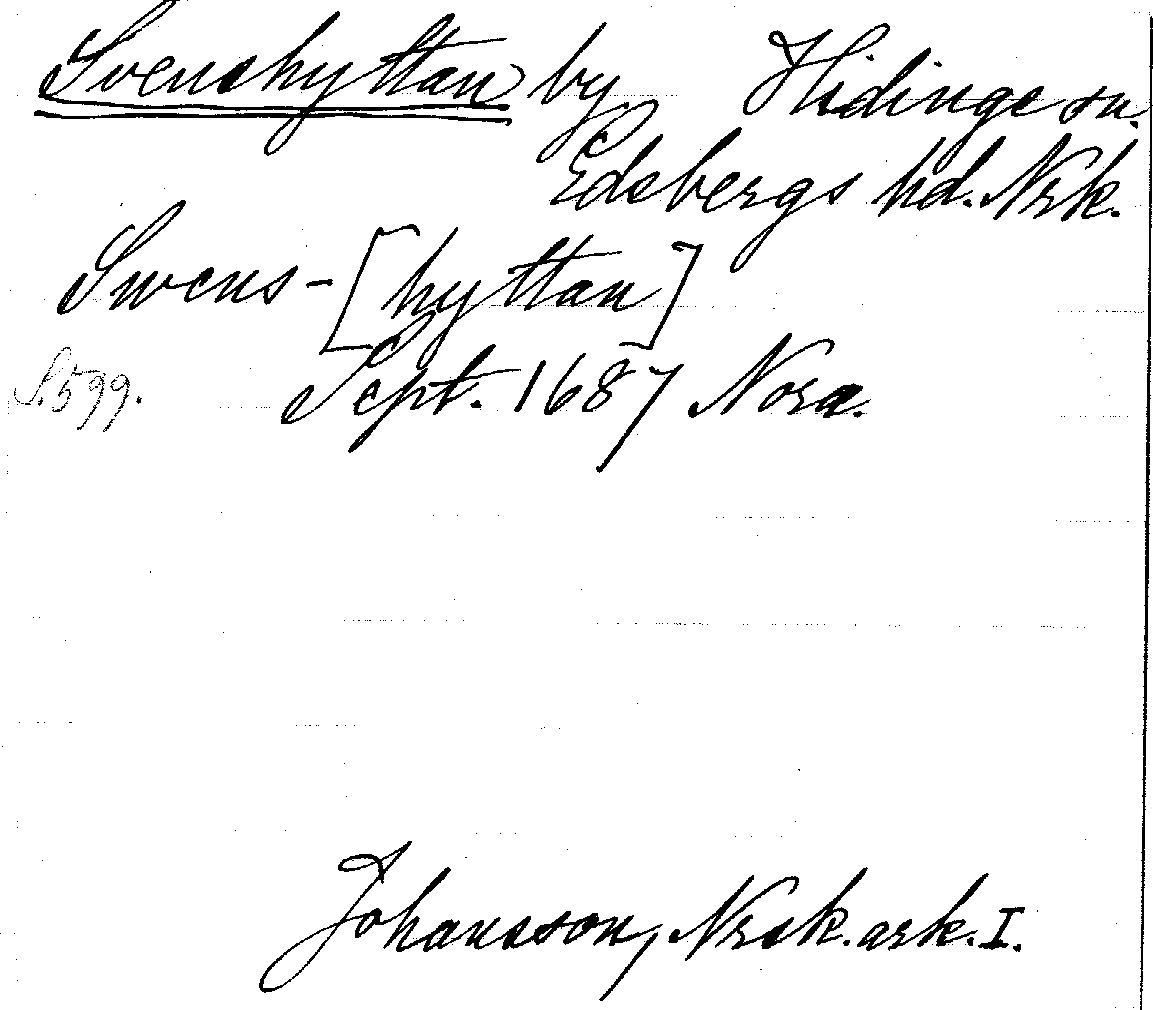 Svenshyttan by Hidinge sn.
Edsbergs hd. Nrk.
Swens-[hyttan]
S. 599. Sept. 1687 Nora.
Johansson, Nrsk. ark. I.